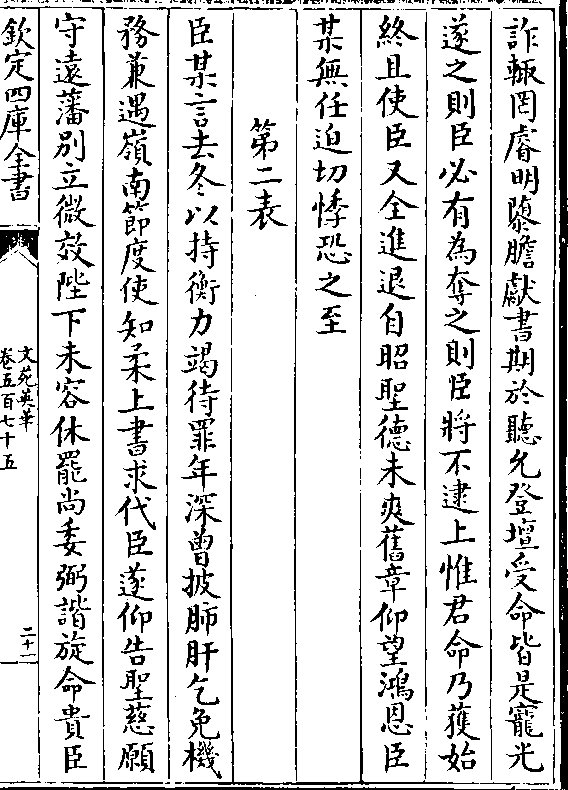 詐輙罔睿明隳膽獻書期於聽允登壇受命皆是寵光
遂之則臣必有為奪之則臣將不逮上惟君命乃獲始
終且使臣又全進退自昭聖德未爽舊章仰望鴻恩臣
某無任迫切悸恐之至
第二表
臣某言去冬以持衡力竭待罪年深曽披肺肝乞免機
務兼遇嶺南節度使知柔上書求代臣遂仰告聖慈願
守遠藩別立微效陛下未容休罷尚委弼諧旋命貴臣
欽定四庫全書
文苑英華
卷五百七十五
二十一